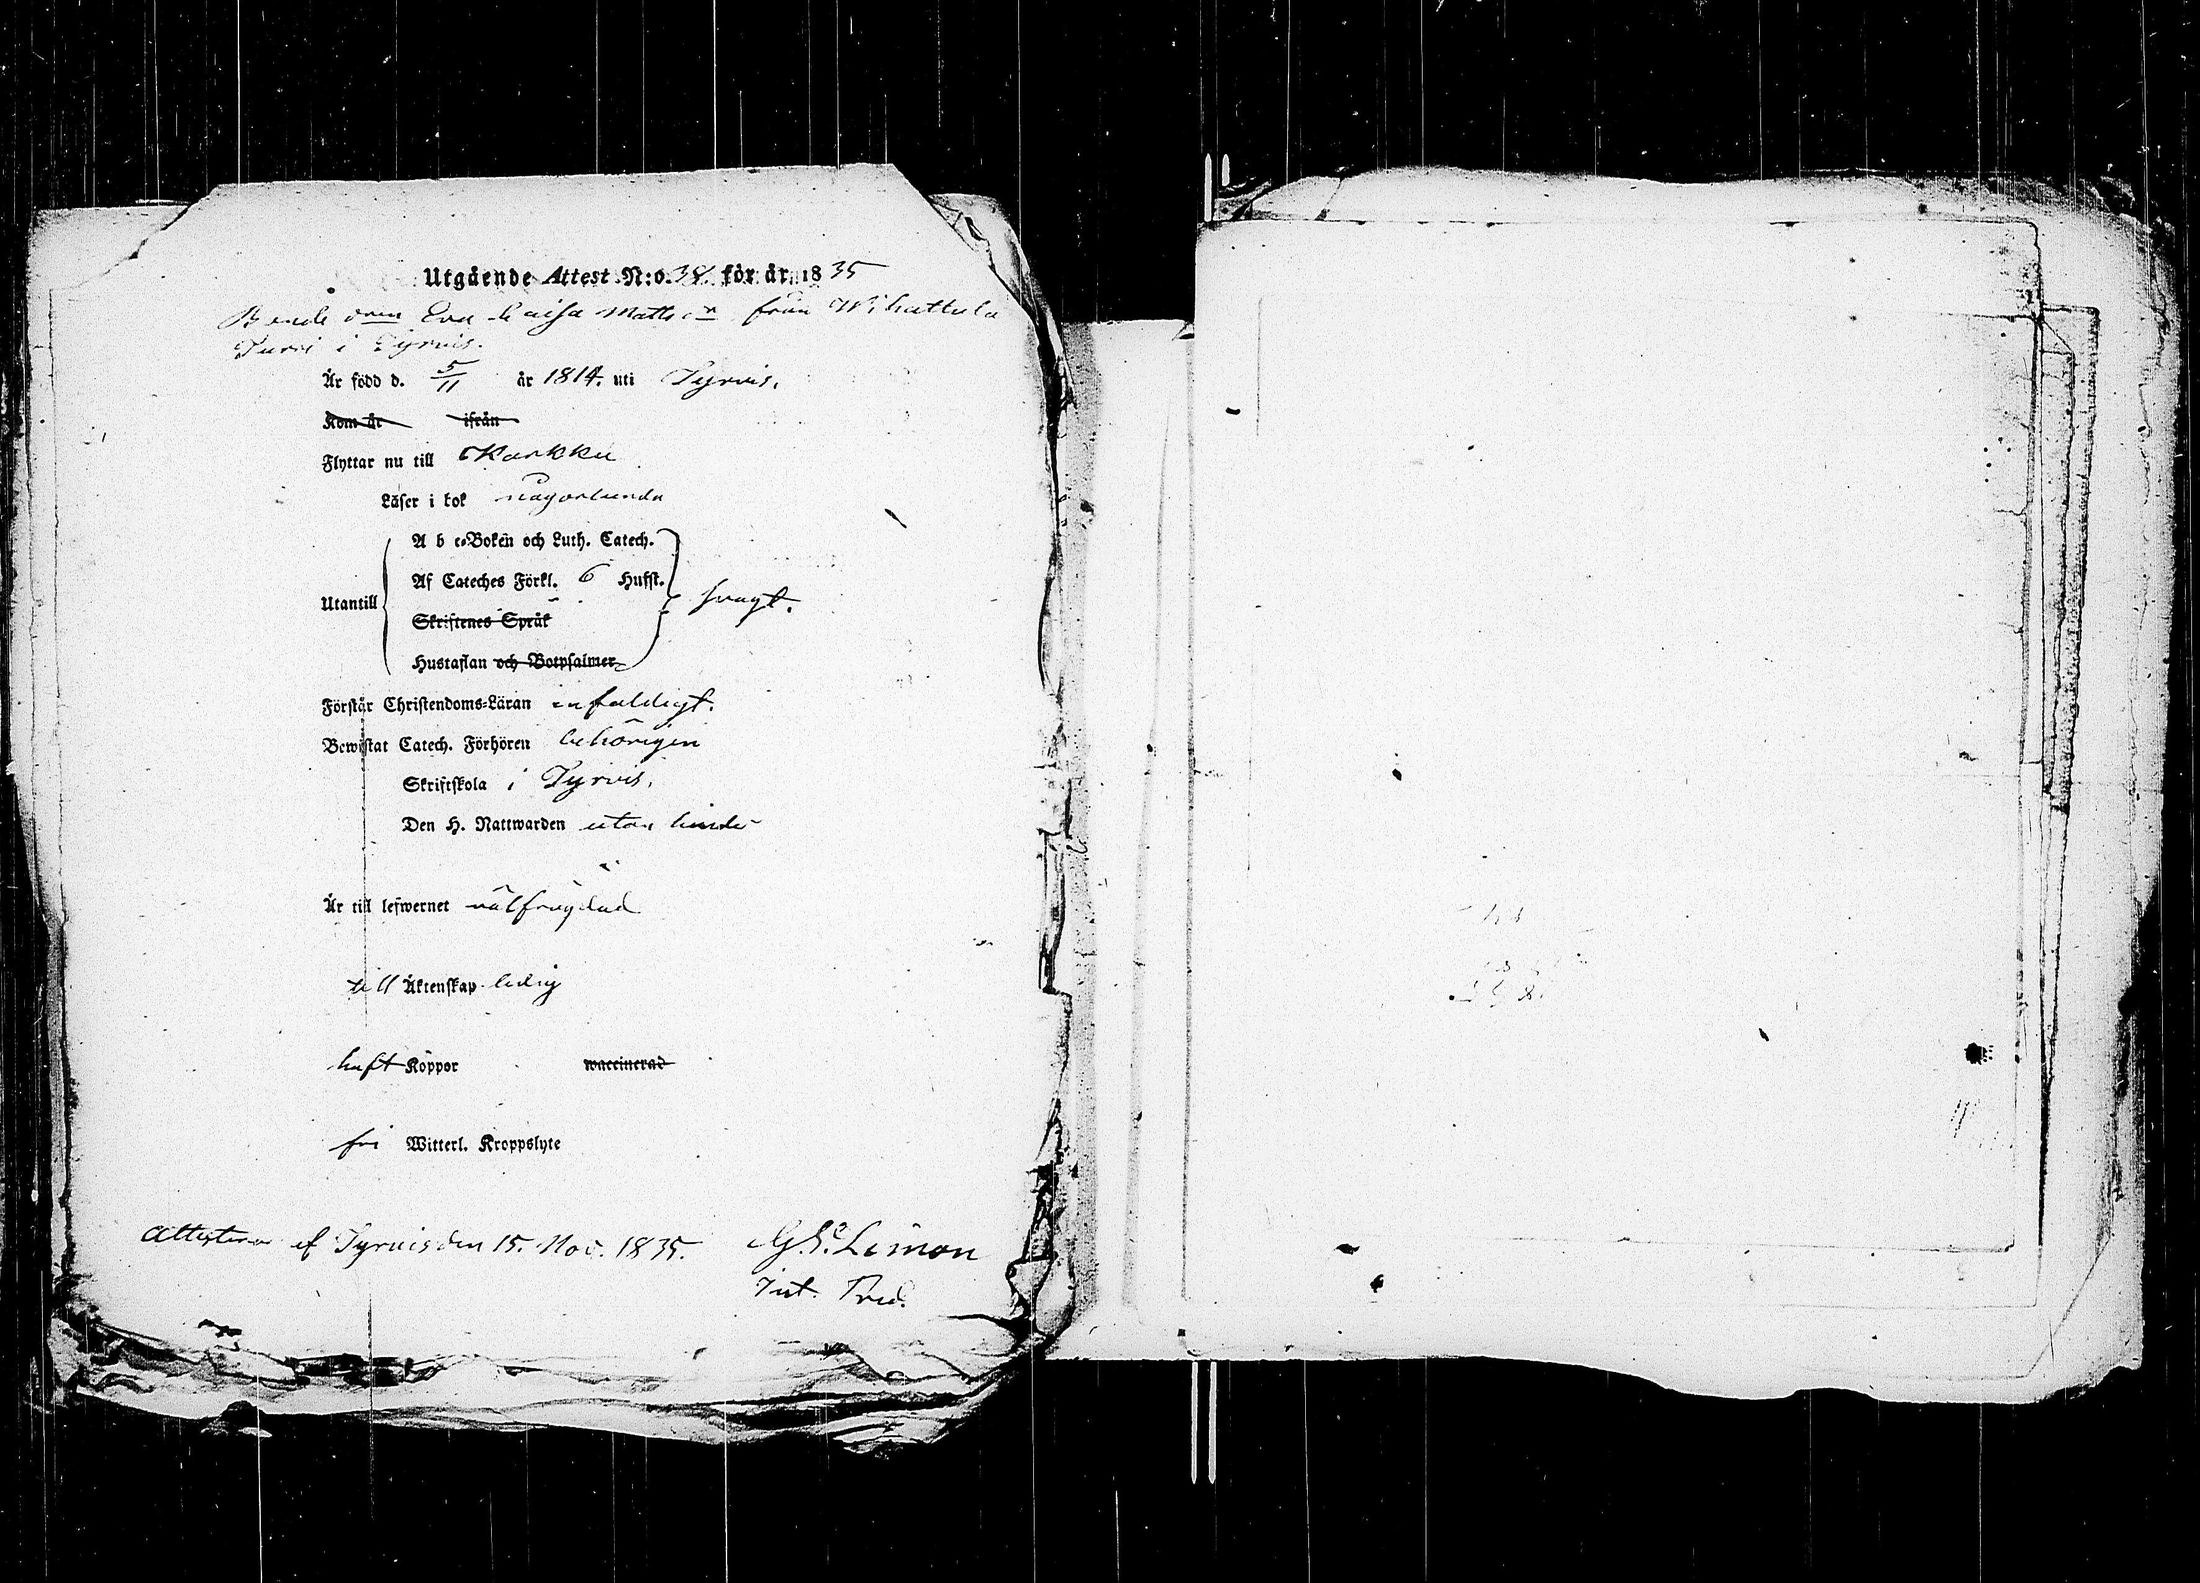 Utgående Attest N:o. 38. för år 1835
Bonde dren Eva Caisa Mattsdr från Wihattula
Turri i Tyrvis.
Är född d. 5/11 år 1814. uti Tyrvis.
Kom år ifrån
Flyttar nu till Karkku
Läser i bok någorlunda
A b c-Boken och Luth. Catech.
Af Cateches Förkl. 6 Hufst.
Utantill svagt.
Skriftenes Språk
Hustaflan och Botpsalmer
Förstår Christendoms-Läran enfaldigt.
Bewistat Catech. Förhören behörigen
Skriftskola i Tyrvis.
Den H. Nattwarden utan hinder
Är till lefwernet välfrägdad
till Äktenskap ledig
haft Koppor waccinerad
fri Witterl. Kroppslyte
Attesteras af Tyrvis den 15. Nov. 1835. Limon